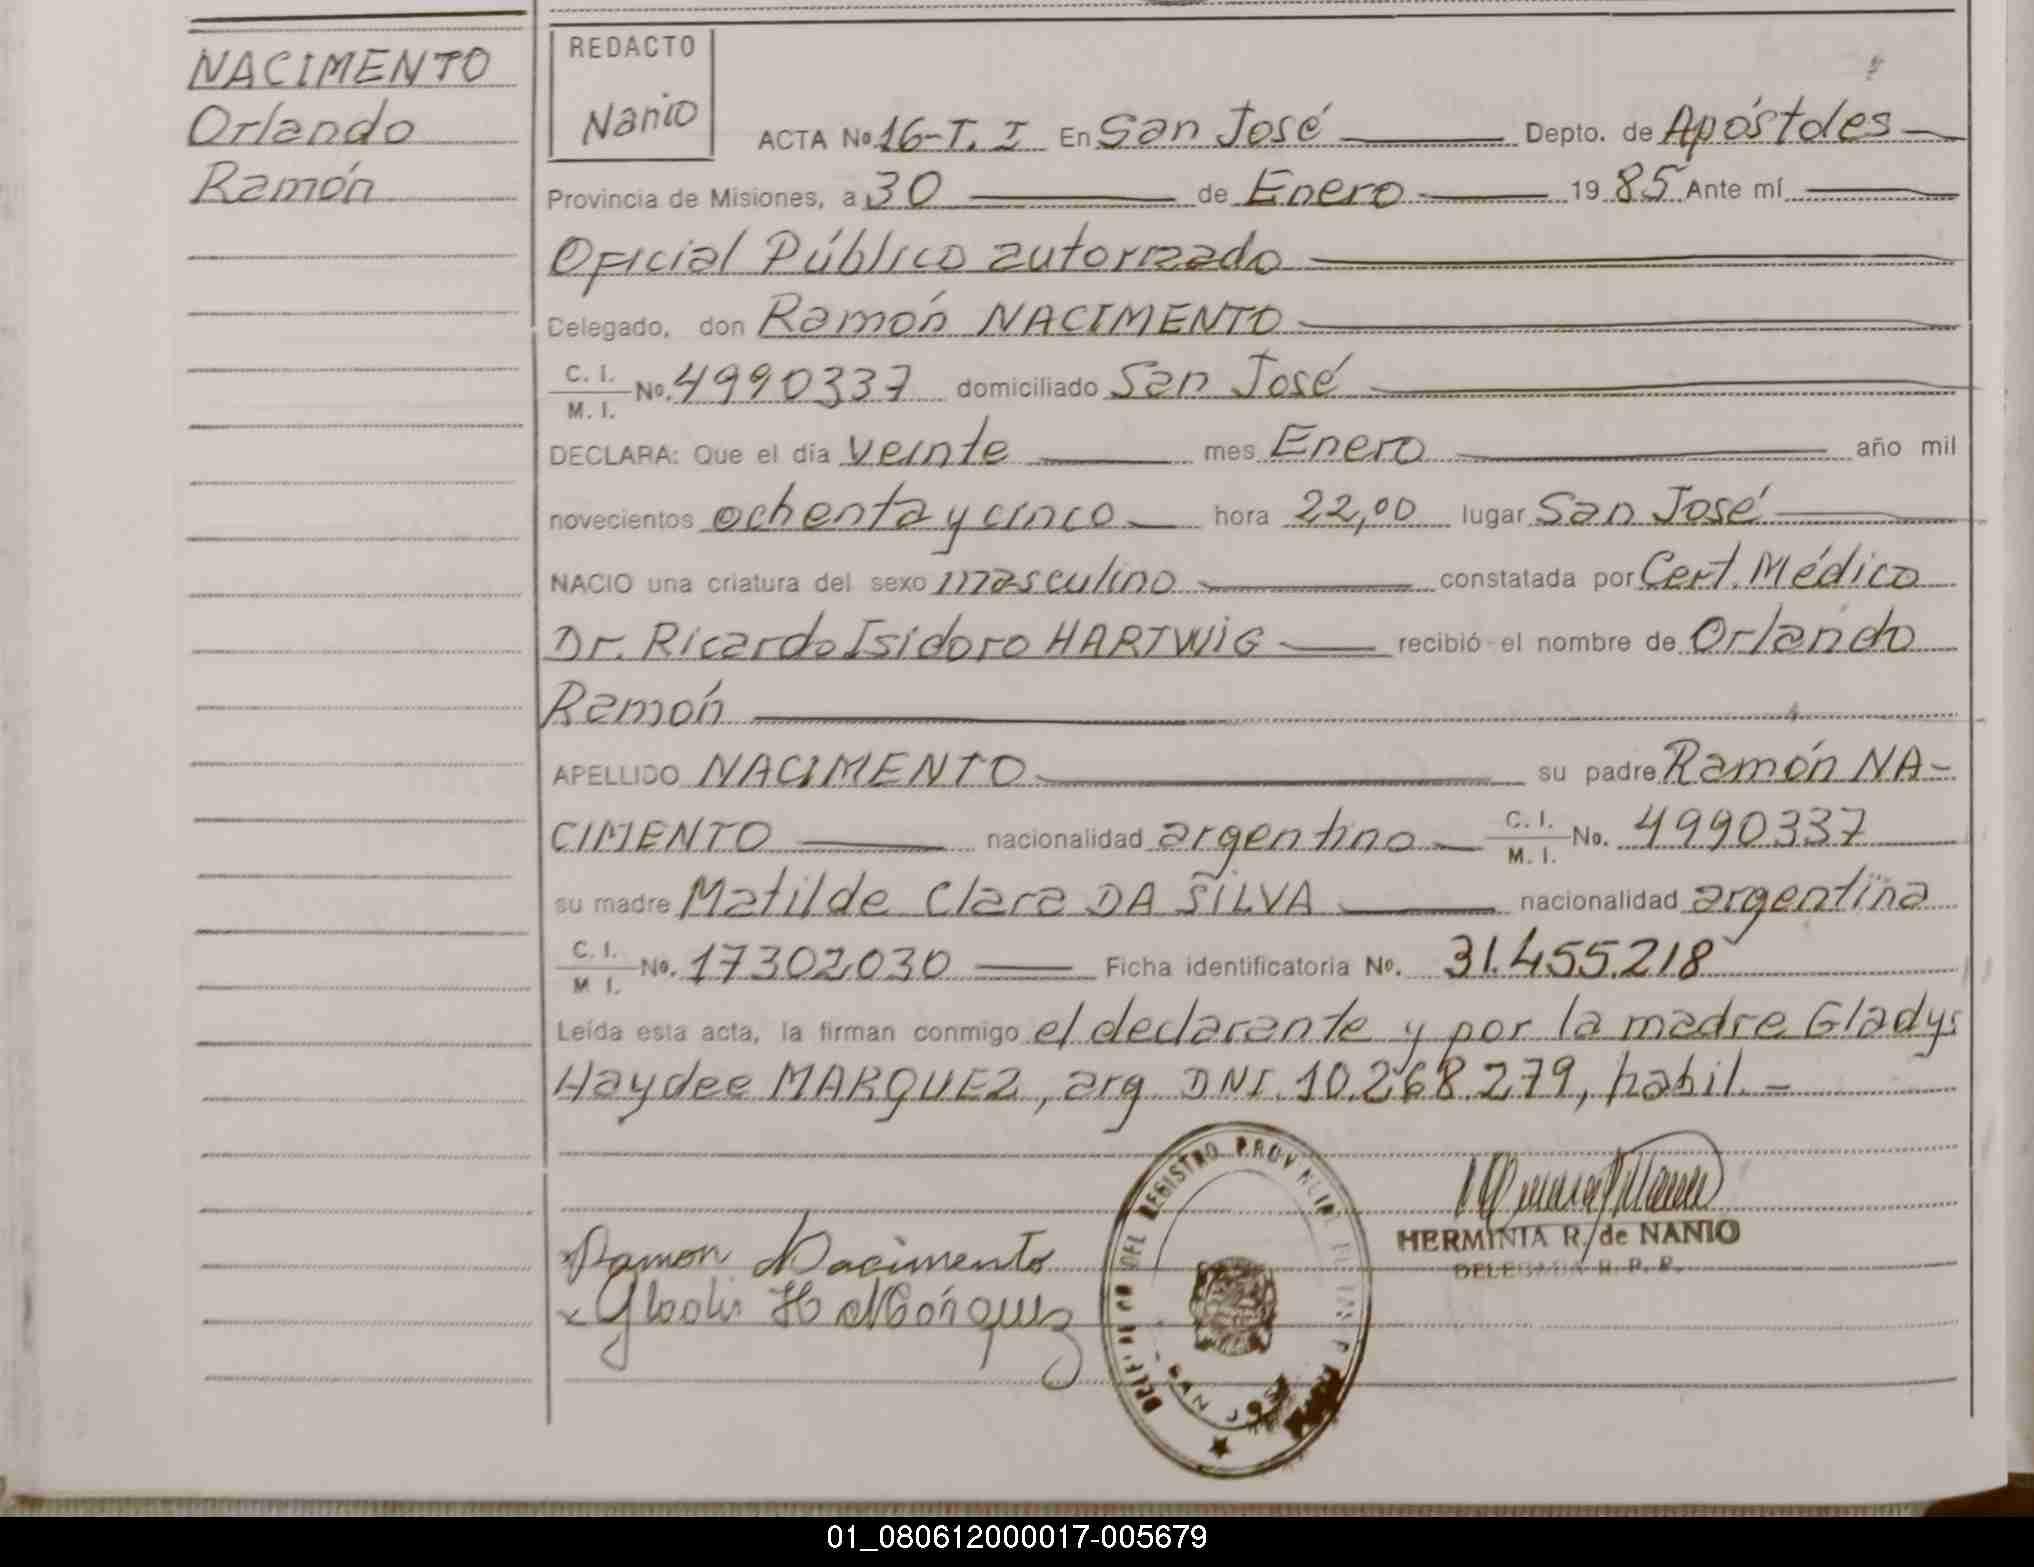 NACIMENTO
Orlando
Ramón
REDACTO
Nanio
ACTA No. 16-T. I En San José Depto. de Apóstoles
Provincia de Misiones, a 30 de Enero 1985 Ante mí
Oficial Público autorizado
Delegado, don Ramón NACIMENTO
C. I.
M. I. No. 4990337 domiciliado San José
DECLARA: Que el día veinte mes Enero año mil
novecientos ochenta y cinco hora 22,00 lugar San José
NACIO una criatura del sexo masculino constatada por Cert. Médico
Dr. Ricardo Isidoro HARTWIG recibió el nombre de Orlando
Ramón
APELLIDO NACIMENTO su padre Ramón NA-
CIMENTO nacionalidad argentino C. I. M. I. No. 4990337
su madre Matilde Clara DA SILVA nacionalidad argentina
C. I. M. I. No. 17302030 Ficha identificatoria No. 31.455.218
Leída esta acta, la firman conmigo el declarante y por la madre Gladys
Haydee MARQUEZ, arg. DNI. 10.268.279, habil.-
Ramon Nacimento
Gladis H Márquez
HERMINIA R. de NANIO
DELEGADA R. P. P.
REGISTRO PROVINCIAL
SAN JOSE
01_080612000017-005679